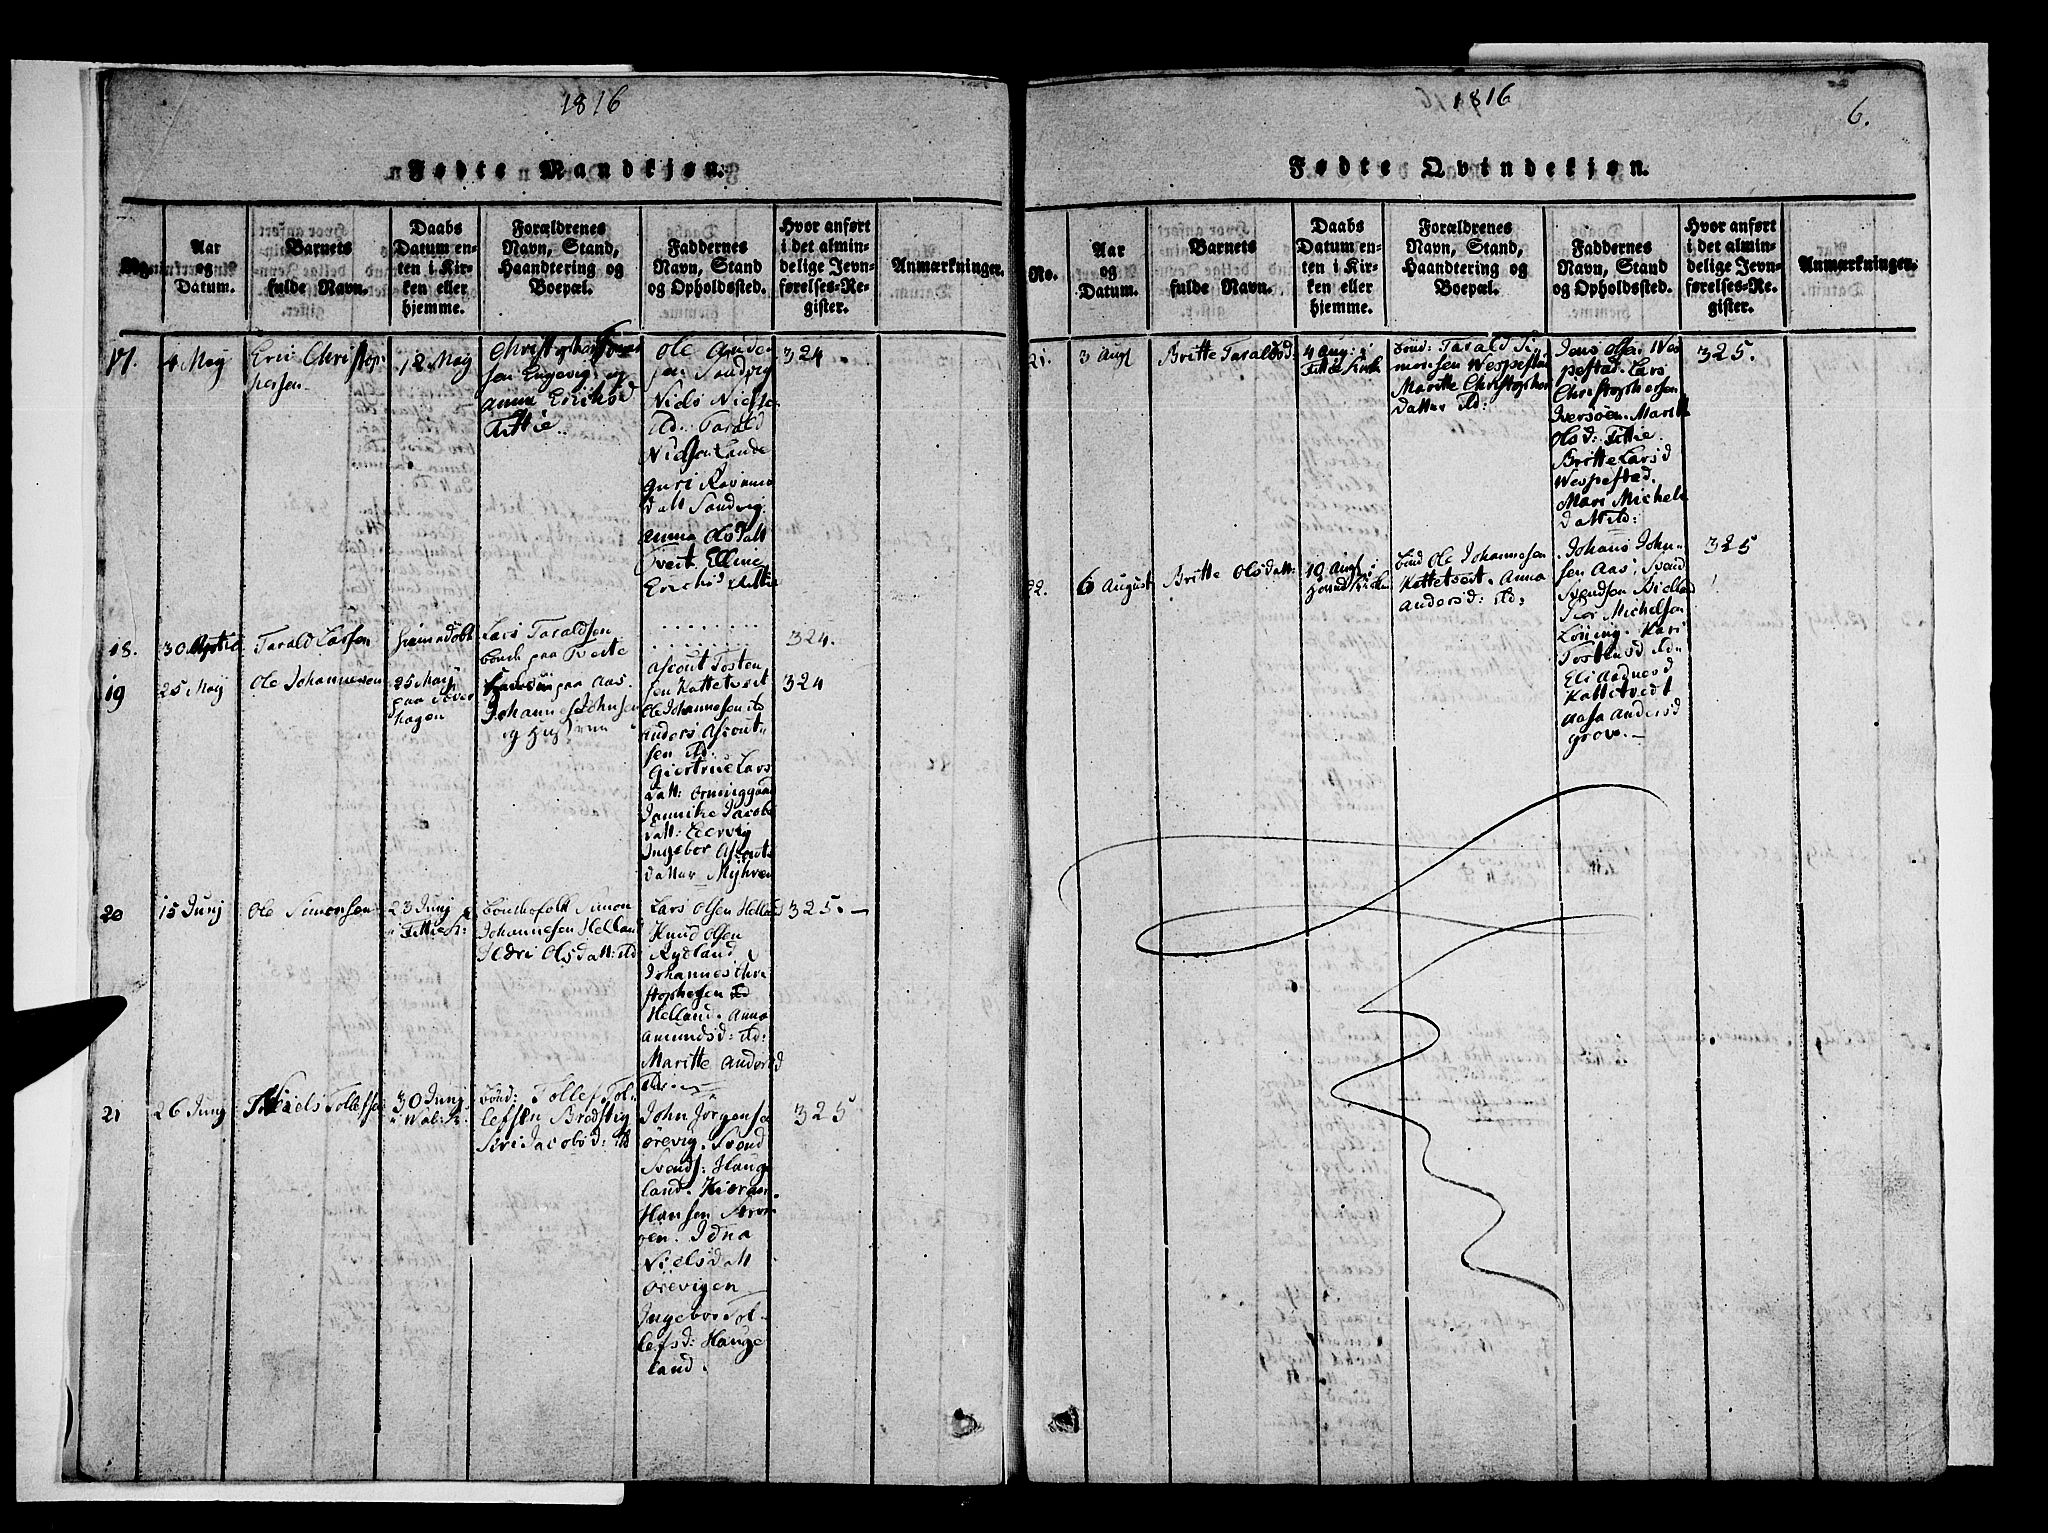 1816
Fødte Mandkjøn.
No.
Aar
og
Datum.
Barnets
fulde Navn.
Daabs
Datum en-
ten i Kir-
ken eller
hjemme.
Forældrenes
Navn, Stand,
Haandtering og
Boepæl.
Faddernes
Navn, Stand
og Opholdssted.
Hvor anført
i det almin-
delige Jevn-
førelses-Re-
gister.
Anmærkninger.
17.
4 May
Eric Christop-
hersen
12 May
Christopher
sen Engevig og
Anna Eriksd
Fittie
Ole
sen Sandvig
Niels Nielse
ibd. Tarald
Nielsen Lande
Guri
datt Sandvig.
Anna Olsdatt
Tveit. Elline
Erichsd Fittie
324
18.
30 April
Tarald Larsen
hiemmedøbt
Lars Taraldsen
bonde paa Tveite
324.
19
25 May
Ole Johannesen
25 May
paa Over
hagen
paa Aas.
Johannes Johnsen
og Hustrue
Ascout Tosten
sen Kattetveit
Ole Johannesen ibd
Anders Ascout-
sen ibd.
Giertrue Lars
datt: Orninggaard
Jannike Jacobs
datt: Leervig
Ingebor Ascouts
datter Myhren
324
20
15 Junj
Ole Simonsen
23 Junj
i Fittie K:
Bøndefolk Simon
Johannesen Helland
Ildri Olsdatt: ibd
Lars Olsen Helland
Knud Olsen
Rydland
Johannes Chri
stophersen ibd
Helland. Anna
Amundsd: ibd:
Maritte Andersd
ibd.
325.-
21
26 Junj
Niels Tollefsen
30 Junj
i Wal: K:
bønd: Tollef Tol-
lefsen Brodstvig
Siri Jacobsd: ibd
John Jørgensen
Orevig. Svend
Svends: Hauge
land.
Hansen
gen. Idna
Nielsdatt
Orevigen
Ingebor Tol-
lefsd: Hauge
land.
325
1816
6.
Fødte Qvindekjøn.
No.
Aar
og
Datum.
Barnets
fulde Navn.
Daabs
Datum en-
ten i Kir-
ken eller
hjemme.
Forældrenes
Navn, Stand,
Haandtering og
Boepæl.
Faddernes
Navn, Stand
og Opholdssted.
Hvor anført
i det almin-
delige Jevn-
førelses-Re-
gister.
Anmærkninger.
21.
3 Augt
Britte Taraldsd:
4 Aug: i
Fittie Kirk
bønd: Tarald Si-
monsen Wespestad
Maritte Christopher
datter ibd:
Jens Olsen Wes
pestad. Lars
Christophersen
Iversøen. Marith
Olsd: Fittie.
Britte Larsd
Wespestad.
Mari Michels
datt ibd:
325.
22.
6 August
Britte Olsdatt:
10 Augt i
bønd Ole Johannesen
Kattetveit. Anna
Andersd: ibd.
Johans John-
sen Aas, Svend
Svendsen Bielland
Peer Michelsen
Løning. Kari
Tostensd ibd-
Eli Aadnesd
Kattetvedt
Aasa Andersd
grove.-
325